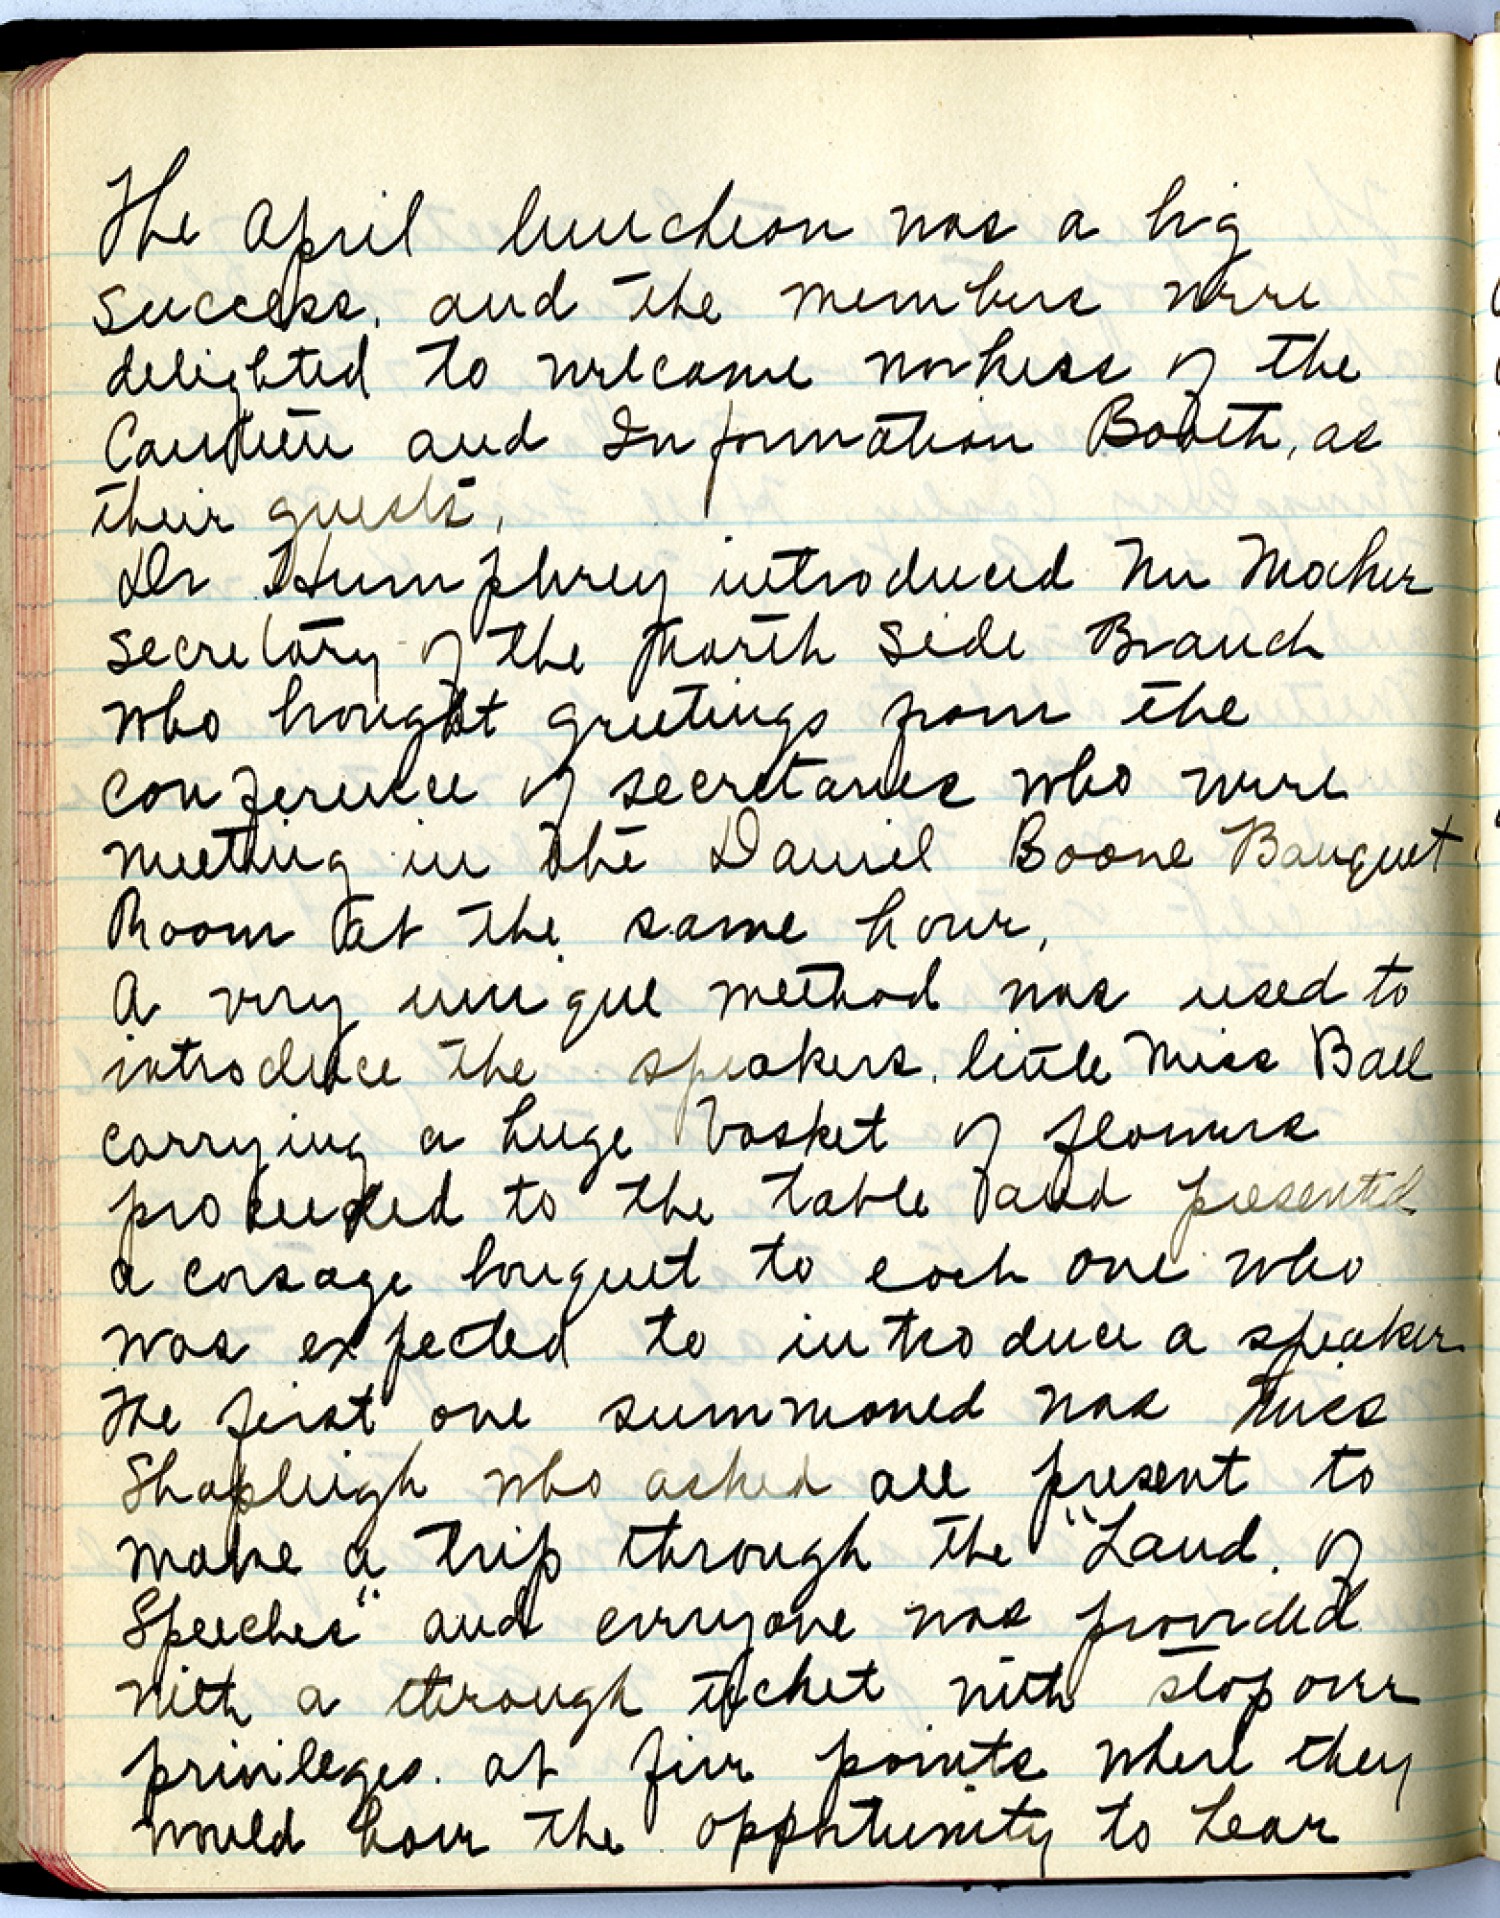 The April luncheon was a big
success, and the members were
delighted to welcome workers of the
Canteen and Information Booth, as
their guests.
Dr Humphrey introduced Mr Mocker
secretary of the North Side Branch
who brought greetings from the
conference of secretaries who were
meeting in the Daniel Boone Banquet
Room at the same hour.
A very unique method was used to
introduce the speakers, little Miss Ball
carrying a huge basket of flowers
proceeded to the table and presented
a corsage bouquet to each one who
was expected to introduce a speaker.
The first one summoned was Miss
Shapleigh who asked all present to
make a trip through the "Land of
Speeches" and everyone was provided
with a through ticket with stop over
privileges at five points where they
would have the opportunity to hear